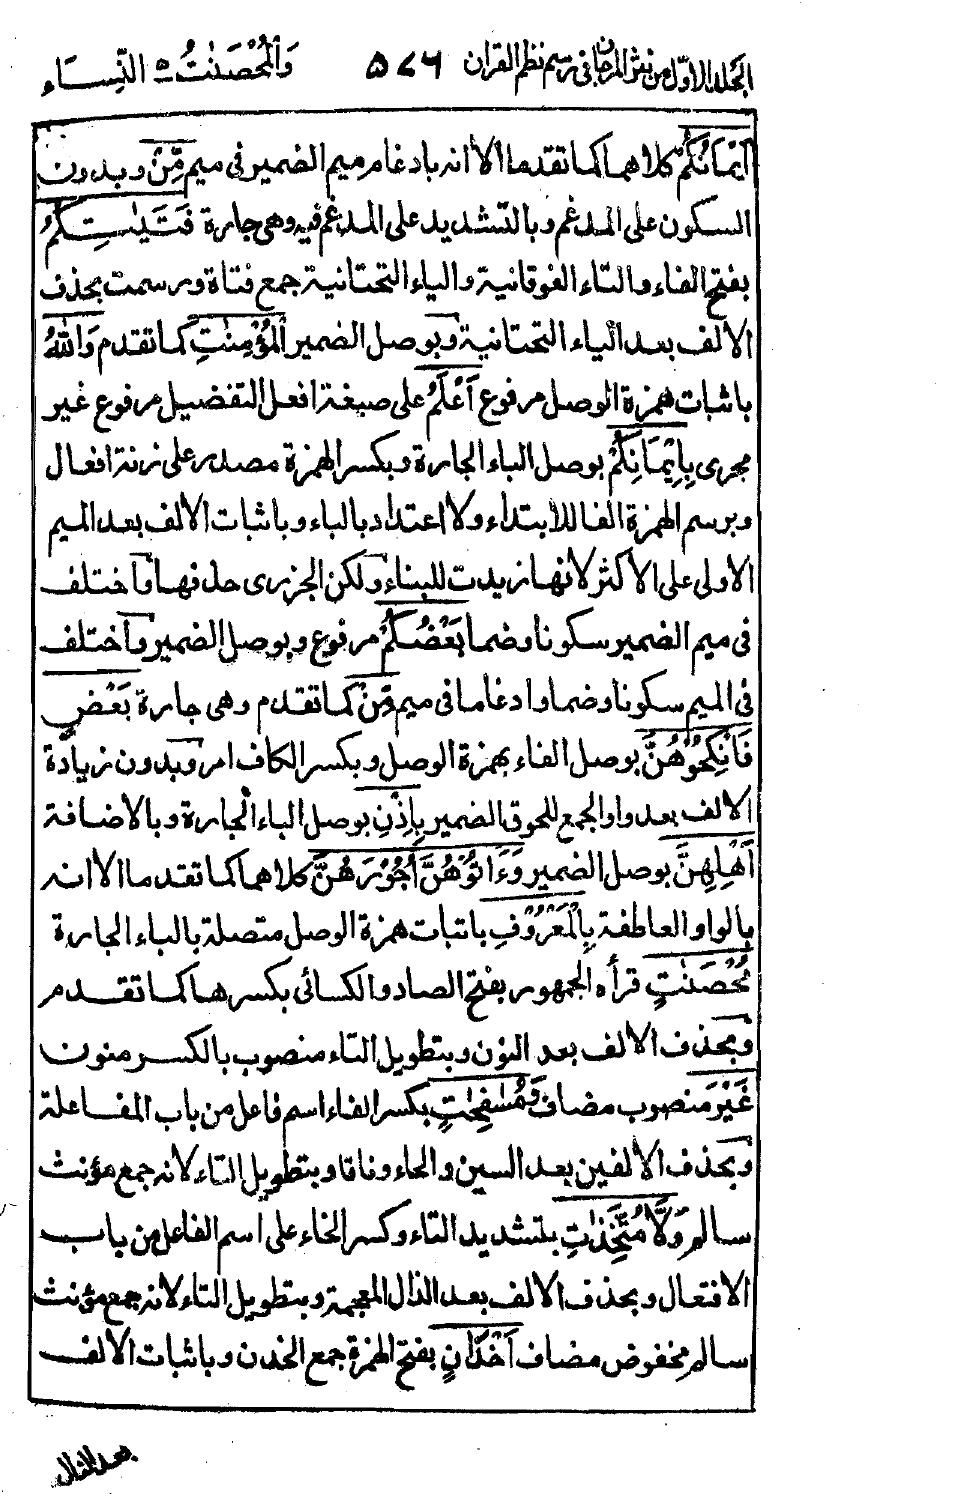 الجلد الاول من نثر المرجان في رسم نظم القران ٥٧٦ وَالْمُحْصَنٰتُ ٥ النِّسَاء
اَيْمَانُكُمْ كلاهما كما تقدما الا انه بادغام ميم الضمير في ميم مِّنْ وبدون
السكون على المدغم وبالتشديد على المدغم فيه وهى جارة فَتَيٰتِكُمُ
بفتح الفاء والتاء الفوقانية والياء التحتانية جمع فتاة ورسمت بحذف
الالف بعد الياء التحتانية وبوصل الضمير الْمُؤْمِنٰتِ كما تقدم وَاللّٰهُ
باثبات همزة الوصل مرفوع اَعْلَمُ على صيغة افعل التفضيل مرفوع غير
مجرى بِاِيْمَانِكُمْ بوصل الباء الجارة وبكسر الهمزة مصدر على زنة افعال
وبرسم الهمزة الفا للابتداء ولا اعتداد بالباء وباثبات الالف بعد الميم
الاولى على الاكثر لانها زيدت للبناء ولكن الجزرى حذفها واختلف
في ميم الضمير سكونا وضما بَعْضُكُمْ مرفوع وبوصل الضمير واختلف
في الميم سكونا وضما وادغاما في ميم مِّنْ كما تقدم وهى جارة بَعْضٍ
فَانْكِحُوْهُنَّ بوصل الفاء بهمزة الوصل وبكسر الكاف امر وبدون زيادة
الالف بعد واو الجمع للحوق الضمير بِاِذْنِ بوصل الباء الجارة وبالاضافة
اَهْلِهِنَّ بوصل الضمير وَءَاتُوْهُنَّ اُجُوْرَهُنَّ كلاهما كما تقدما الا انه
بالواو العاطفة بِالْمَعْرُوْفِ باثبات همزة الوصل متصلة بالباء الجارة
مُحْصَنٰتٍ قرأه الجمهور بفتح الصاد والكسائى بكسرها كما تقدم
وبحذف الالف بعد النون وبتطويل التاء منصوب بالكسر منون
غَيْرَ منصوب مضاف مُسٰفِحٰتٍ بكسر الفاء اسم فاعل من باب المفاعلة
وبحذف الالفين بعد السين والحاء وفاقا وبتطويل التاء لانه جمع مؤنث
سالم وَّلَا مُتَّخِذٰتِ بتشديد التاء وكسر الخاء على اسم الفاعل من باب
الافتعال وبحذف الالف بعد الذال المعجمة وبتطويل التاء لانه جمع مؤنث
سالم مخفوض مضاف اَخْدَانٍ بفتح الهمزة جمع الخدن وباثبات الالف
بعد الدال